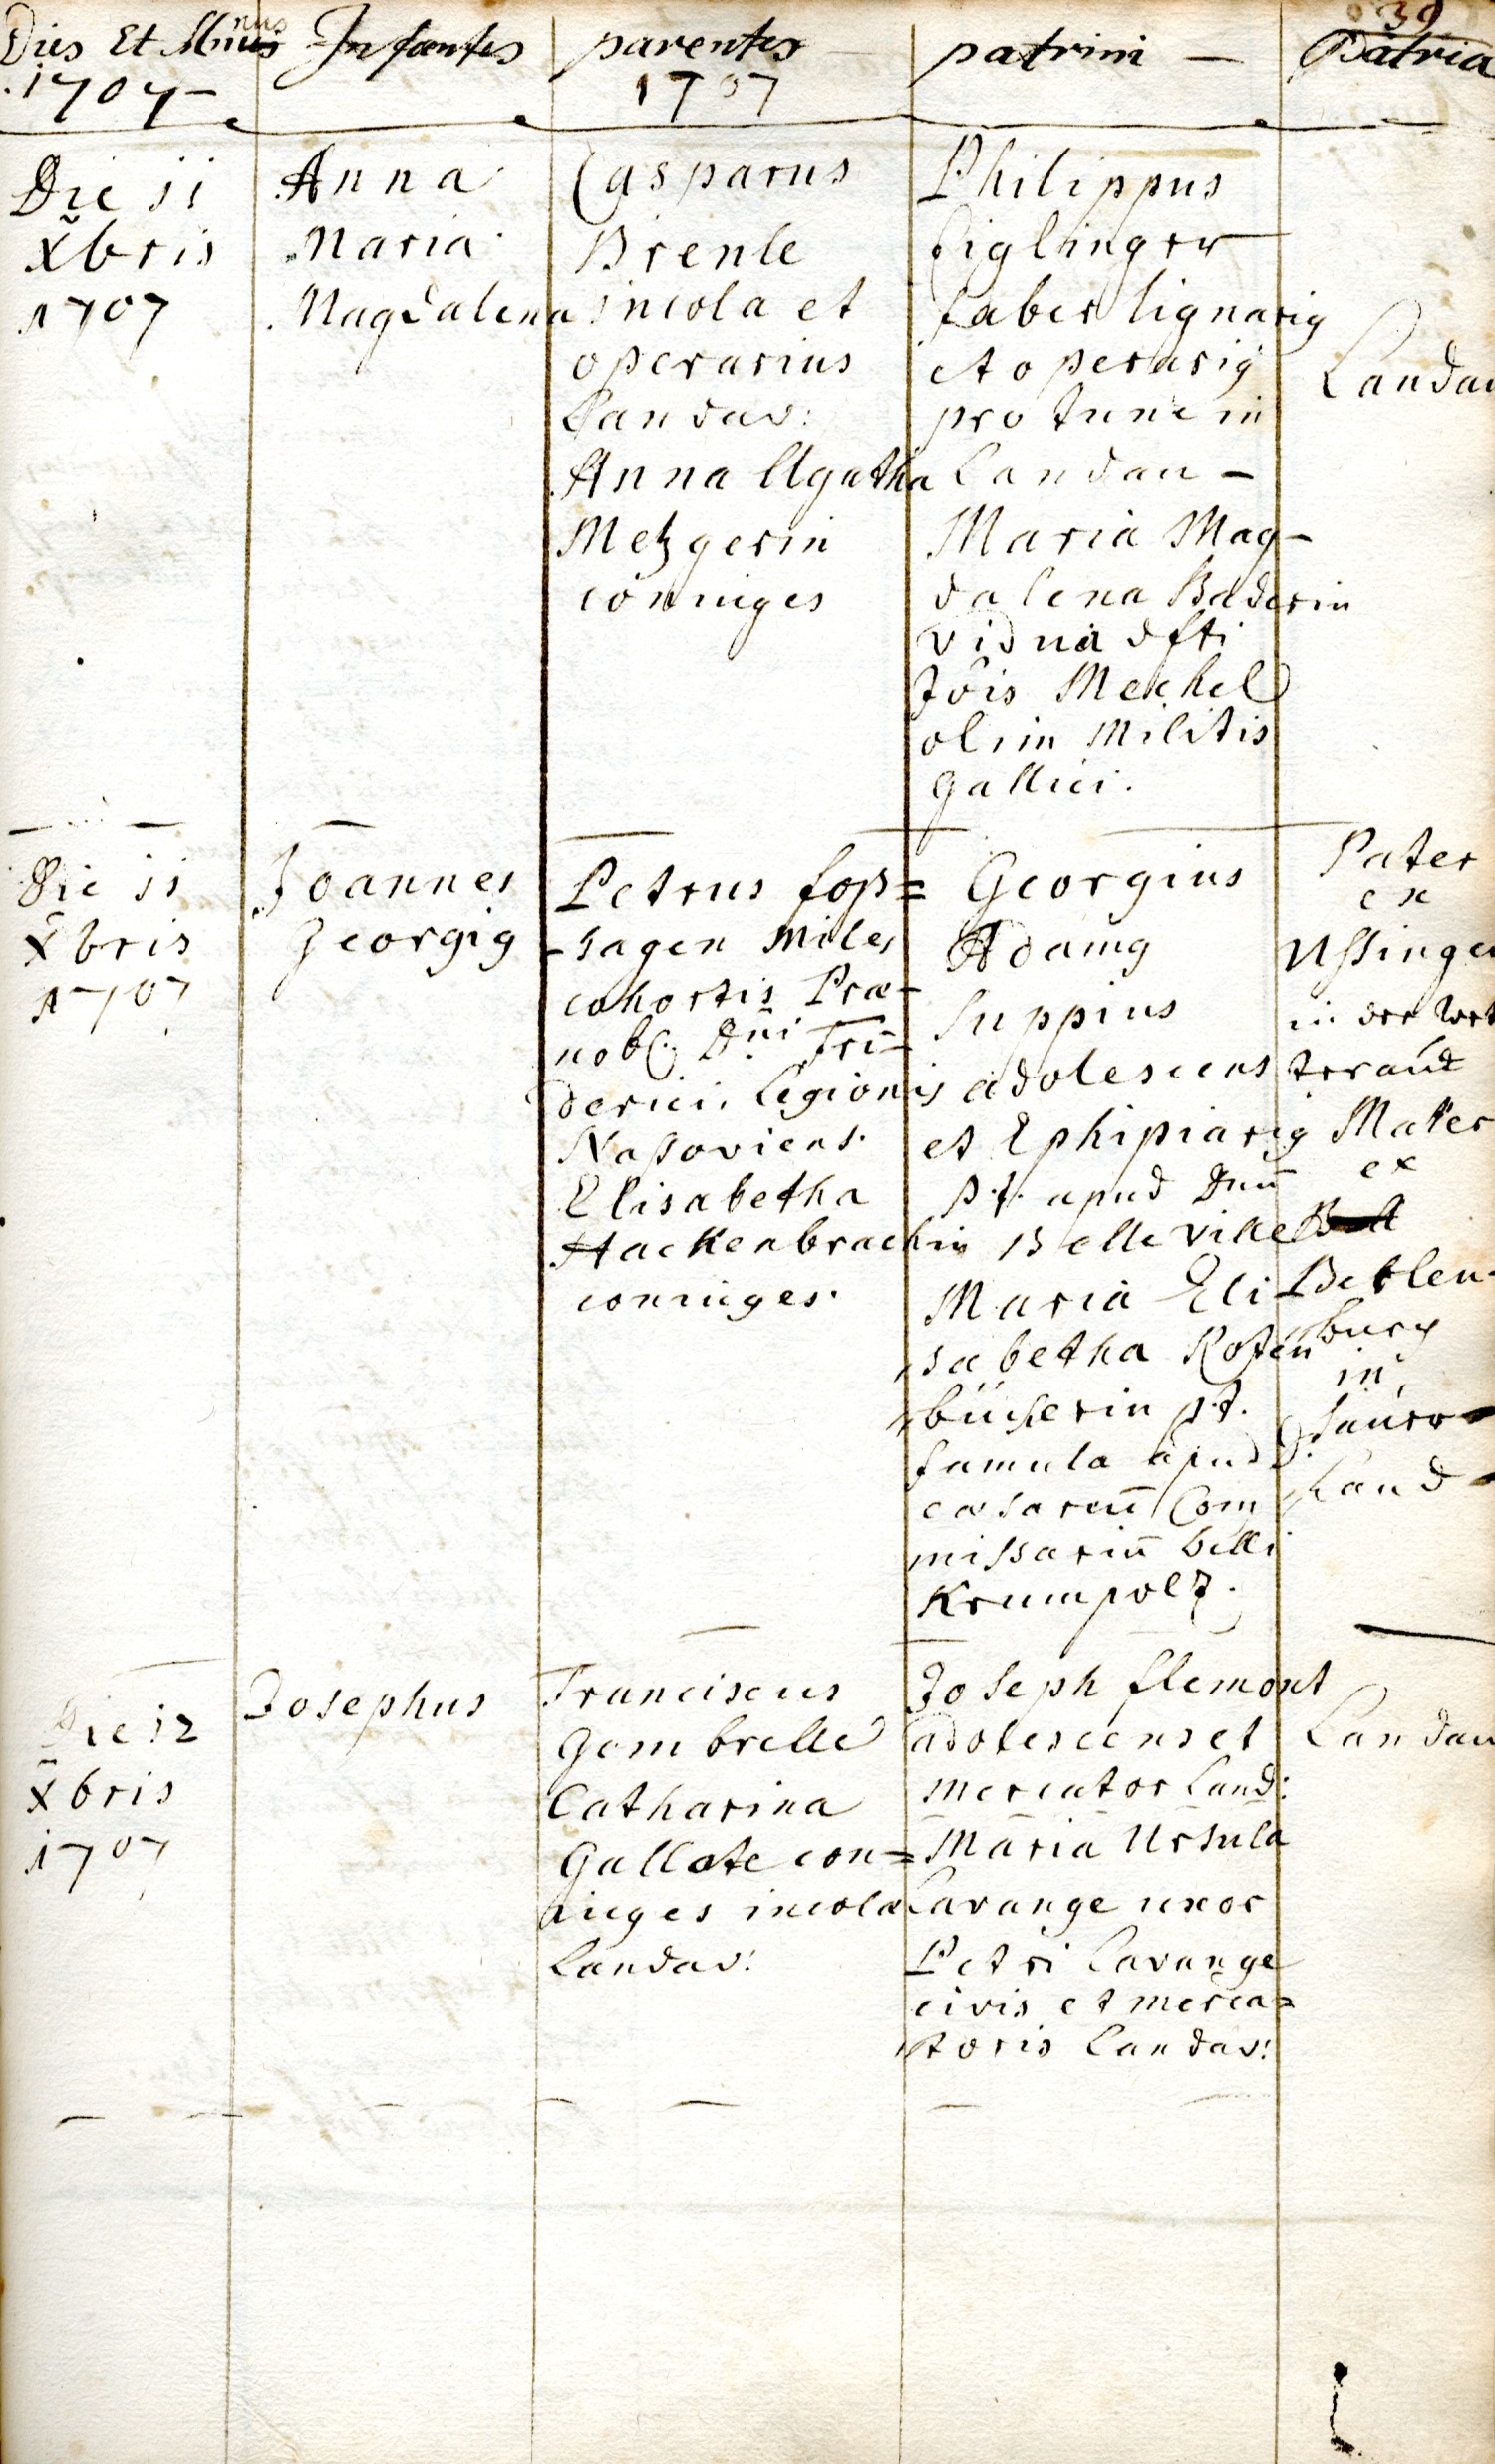 39
Dies Et Mnus
1707 –
Infantes
parentes
1707
patrini –
Patria
Die ii
x̃bris
1707
Anna
Maria
Magdalena
Casparus
Brenle
incola et
operarius
Landav:
Anna Agatha
Metzgerin
coniuges
Philippus
Ziglinger
faber lignarig
et operarig
pro tunc in
Landau –
Maria Mag–
dalena Baderin
vidua dfti
Jois Mechel
olim Militis
Gallici.
Landau
Die ii
x̃bris
1707
Joannes
Georgig
Petrus fop=
-hagen Miles
cohortis Præ–
nob: Dñi Fri–
derici Legionis
Nassoviens.
Elisabetha
Hackenbrachin
coniuges.
Georgius
Adamg
Suppius
adolescens
et Ephipiarig
p.t. apud Dnū
Belleville
Maria Eli
sabetha Roten
bücherin p.t.
famula apud
cæsareū Com
missariū belli
Krumpolz.
Pater
ex
Ussingen
in der Wet
terauw
Mater
ex
Berlen-
burg
in
Saur-
Land-
Die i2
x̃bris
1707
Josephus
Franciscus
Gombrelle
Catharina
Gallote con=
iuges incolæ
Landav:
Joseph flemont
adolescens et
mercator Land:
Maria Ursula
Lavange uxor
Petri Lavange
civis et merca=
toris Landav:
Landau